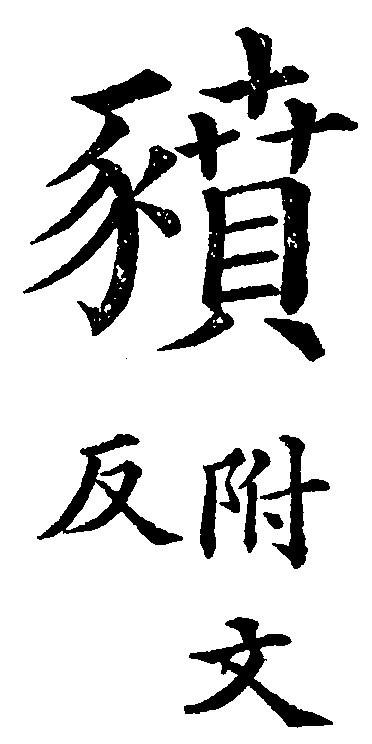 豶
附文
反